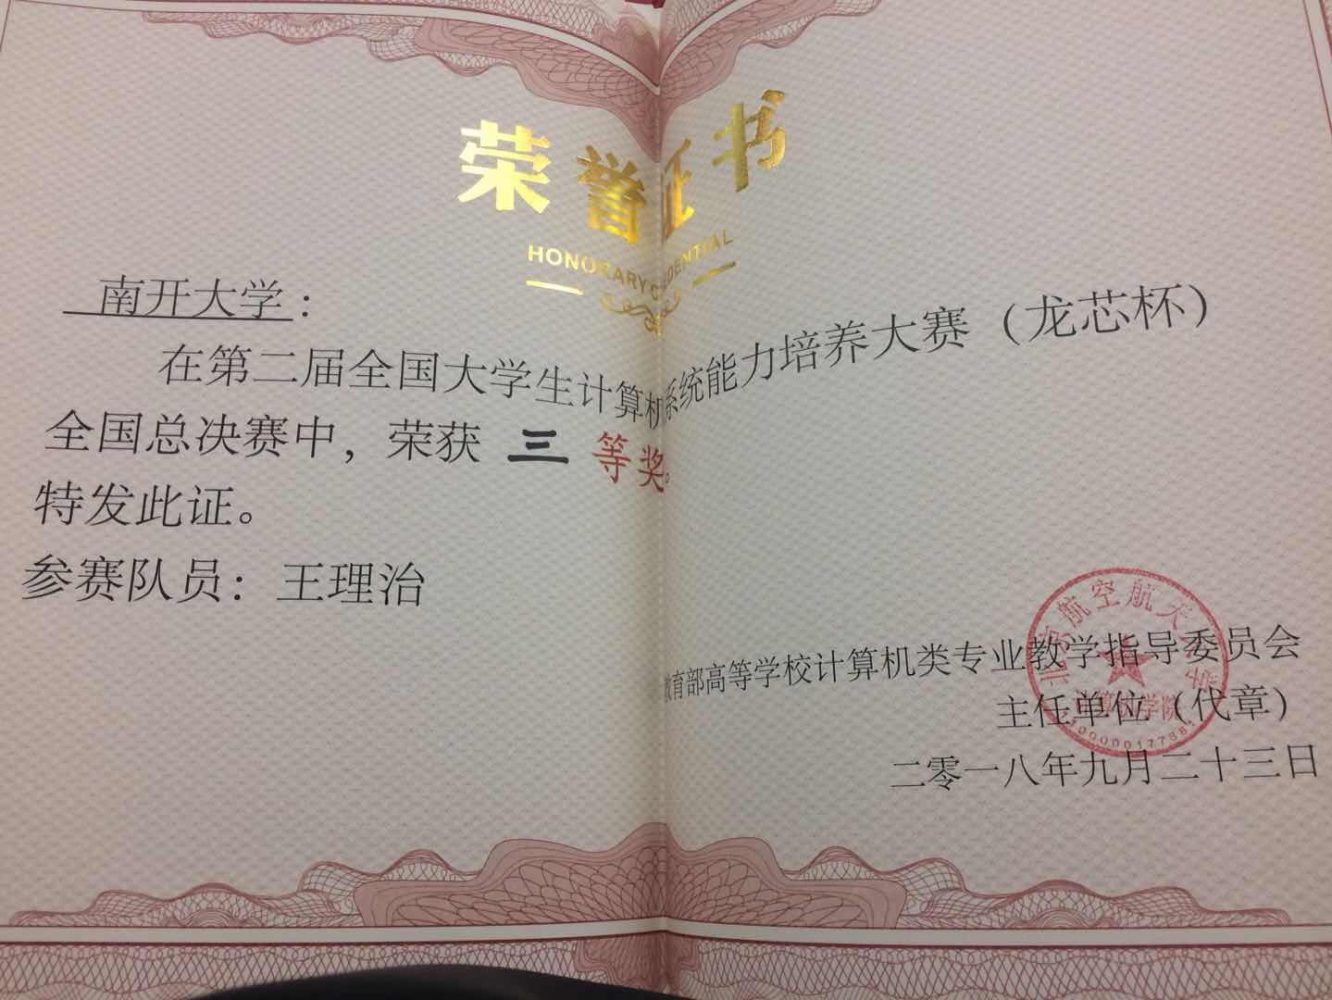 荣誉证书
HONORARY CREDENTIAL
南开大学：
在第二届全国大学生计算机系统能力培养大赛（龙芯杯）
全国总决赛中，荣获 三 等奖。
特发此证。
参赛队员：王理治
教育部高等学校计算机类专业教学指导委员会
主任单位（代章）
二零一八年九月二十三日
北京航空航天大学
计算机学院